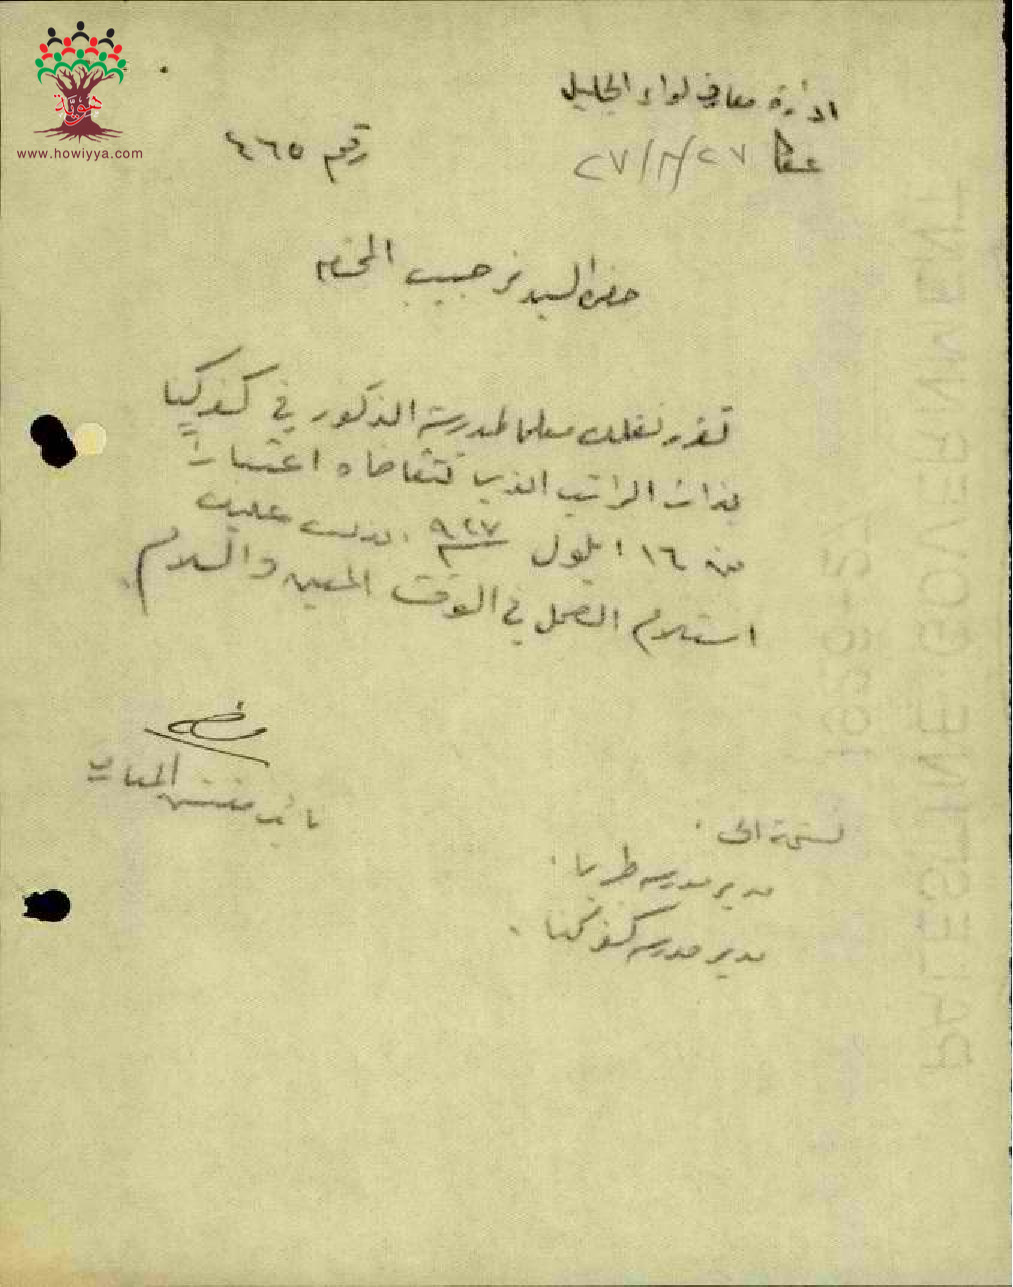 هوية
www.howiyya.com
ادارة معارف لواء الجليل
عكا ٢٧/٨/٢٧
رقم ٤٦٥
حضرة السيد نمر حبيب المحترم
تقرر نقلك معلما لمدرسة الذكور في كفركنا
بذات الراتب الذي تتقاضاه اعتباراً
من ١٦ ايلول ٩٢٧ عليك
استلام العمل في الوقت المعين والسلام.
نائب مفتش المعارف
نسخة الى
مدير مدرسة طبريا.
مدير مدرسة كفركنا.
PALESTINE GOVERNMENT